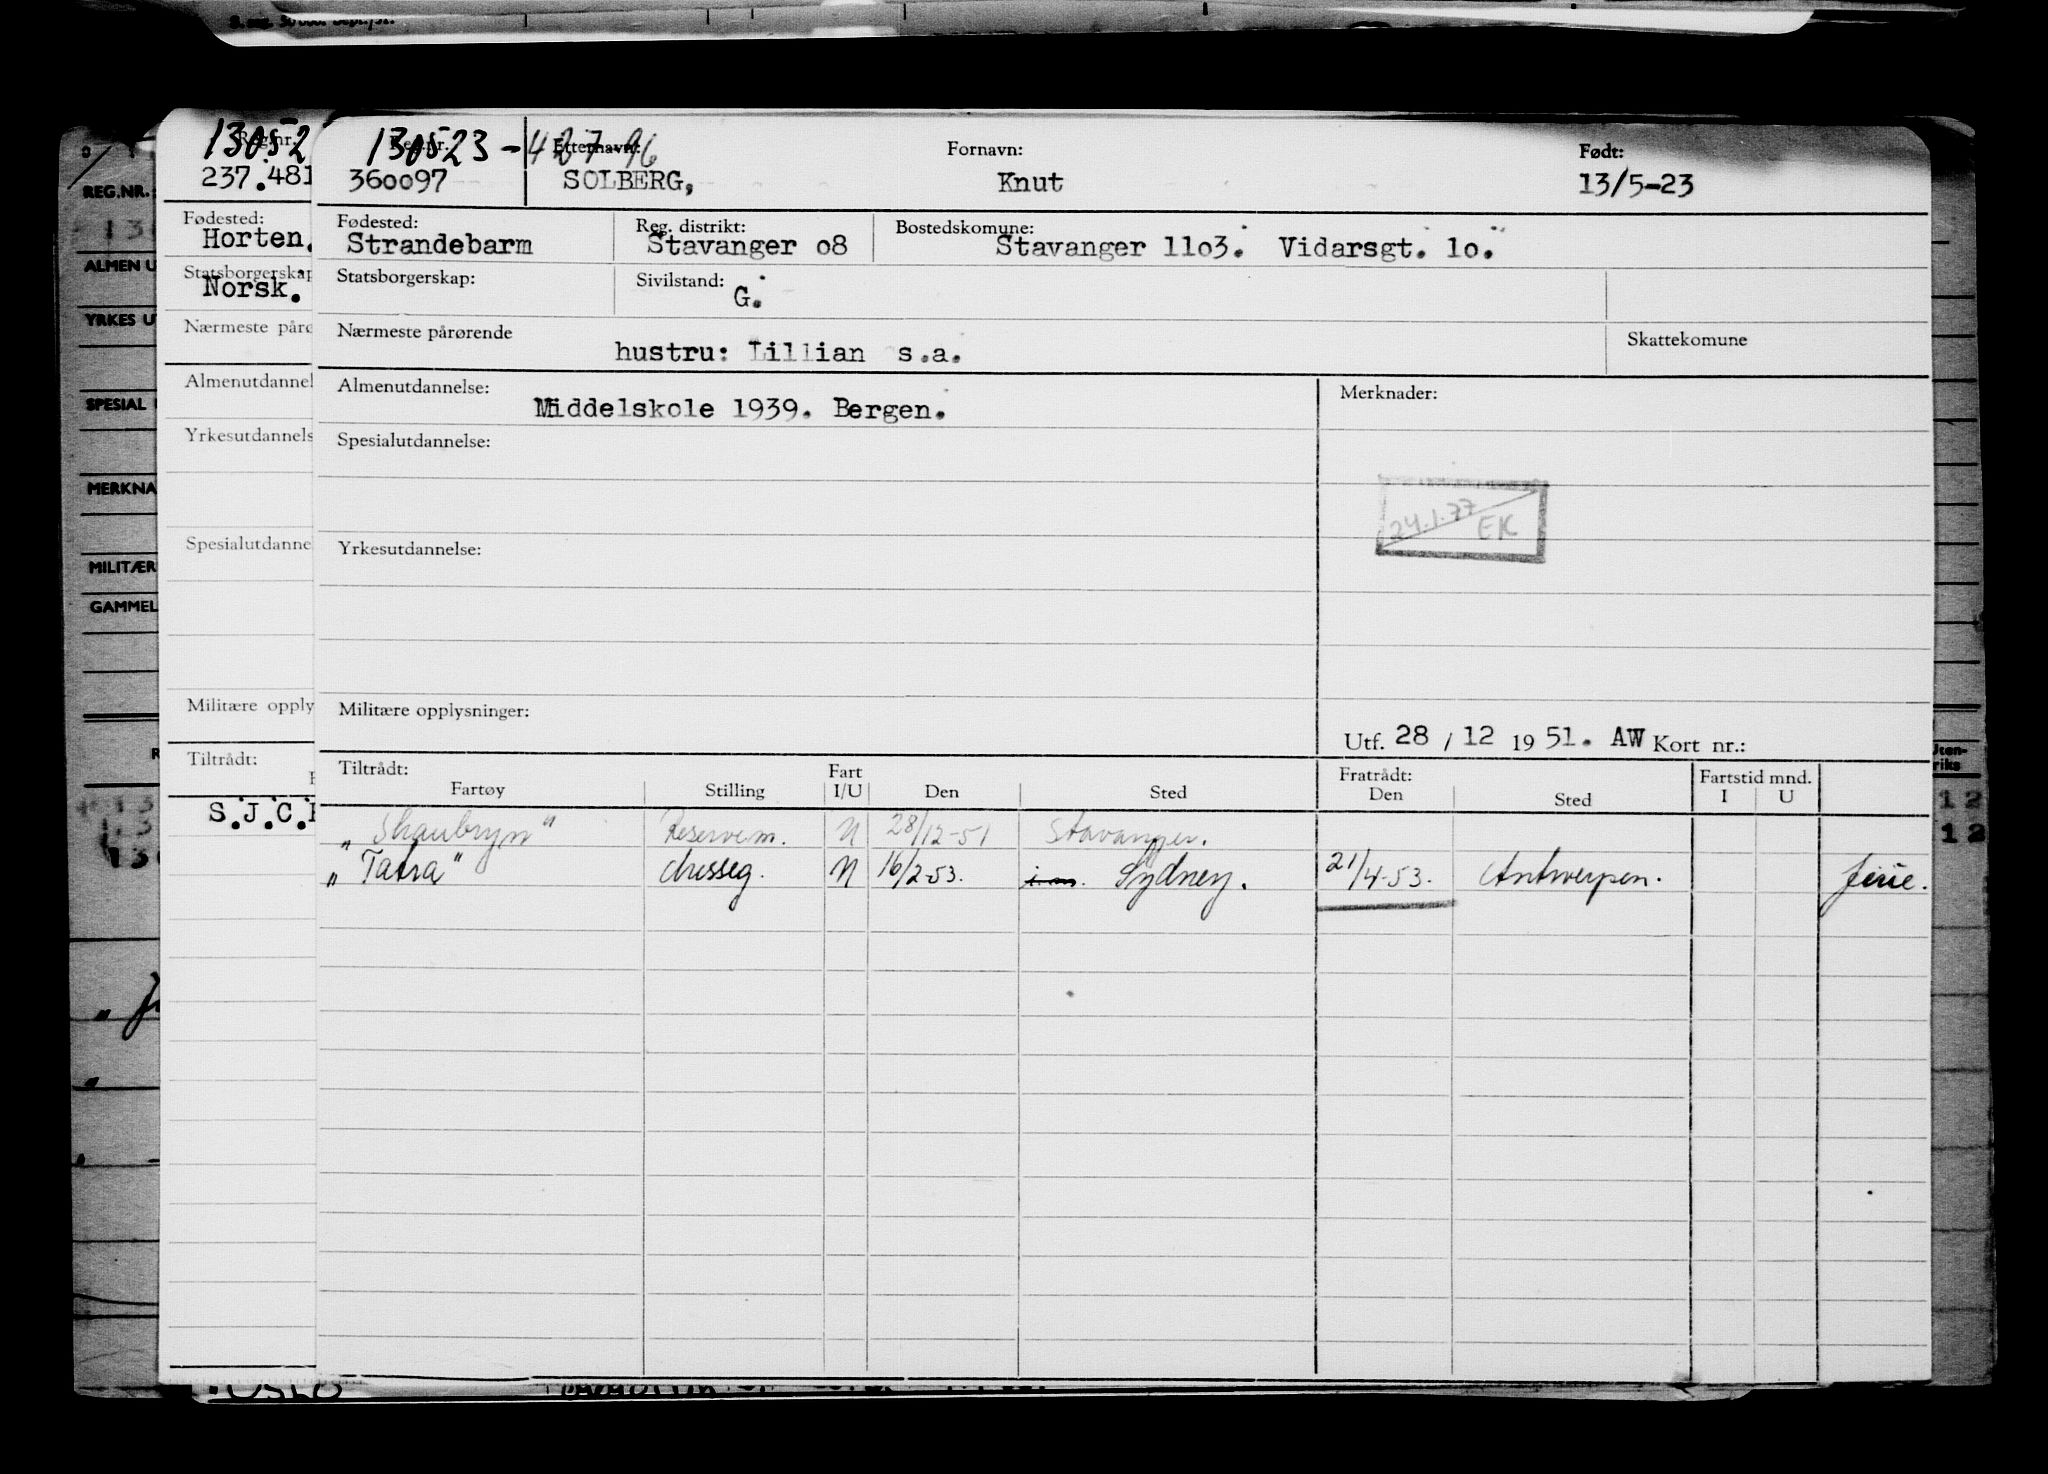 13052 130523-427-96
Reg.nr. Etternavn: Fornavn: Født:
REG.NR.: 237.481 360097 SOLBERG, Knut 13/5-23
Fødested: Fødested: Reg. distrikt: Bostedskomune:
Horten. Strandebarm Stavanger o8 Stavanger 11o3. Vidarsgt. 1o.
ALMEN U Statsborgerskap Statsborgerskap: Sivilstand:
Norsk. G.
YRKES U Nærmeste påro Nærmeste pårørende Skattekomune
hustru: Lillian s.a.
Almenutdannel Almenutdannelse: Merknader:
SPESIAL Middelskole 1939. Bergen.
Yrkesutdannels Spesialutdannelse:
MERKNA
24.1.77 EK
Spesialutdanne Yrkesutdannelse:
MILITÆR
GAMMEL
Militære opply Militære opplysninger:
Utf. 28 / 12 19 51. AW Kort nr.:
Tiltrådt: Tiltrådt: Fart Fratrådt: Fartstid mnd.
Fartøy Stilling I/U Den Sted Den Sted I U
S.J.C. „Skaubryn" Reservem. U 28/12-51 Stavanger. 12
„Tatra" Messeg. U 16/2-53. i.m. Sydney. 21/4-53. Antwerpen. ferie. 12
OSLO